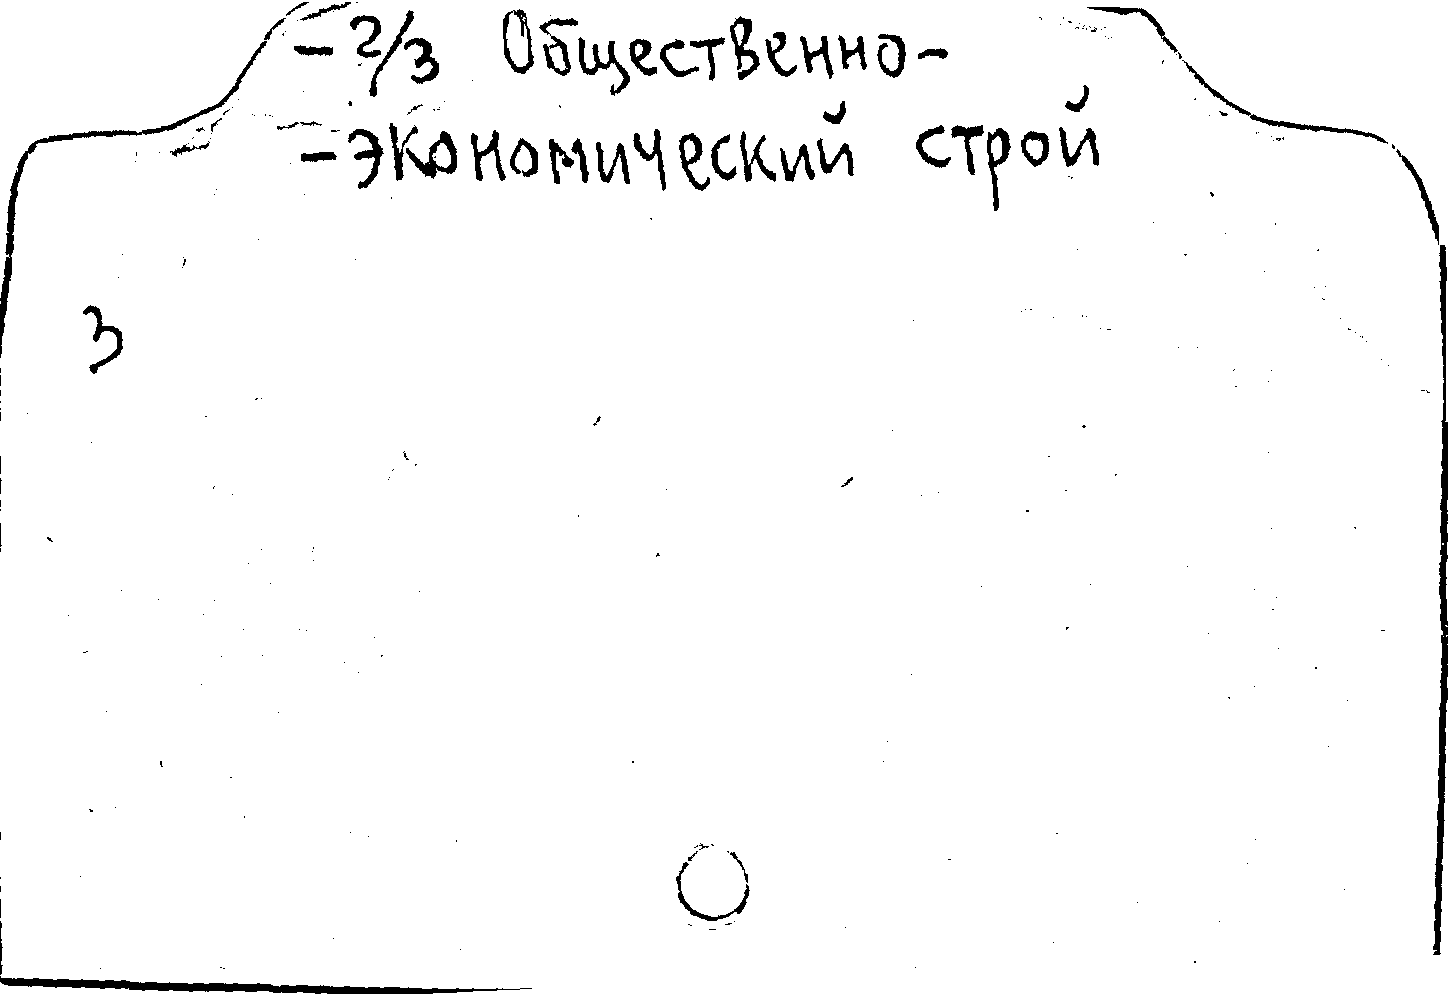 -2/3 Общественно-
-экономический строй
3